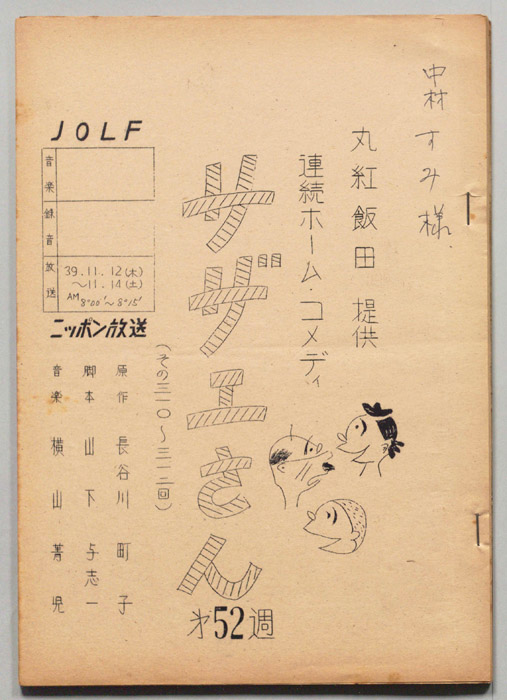 中村すみ様
丸紅飯田 提供
連続ホーム・コメディ
サザエさん
第52週
(その三一〇〜三一二回)
JOLF
音楽
録音
放送
39.11.12(木)
〜11.14(土)
AM 8°00′〜8°15′
ニッポン放送
原作 長谷川町子
脚本 山下与志一
音楽 横山菁児